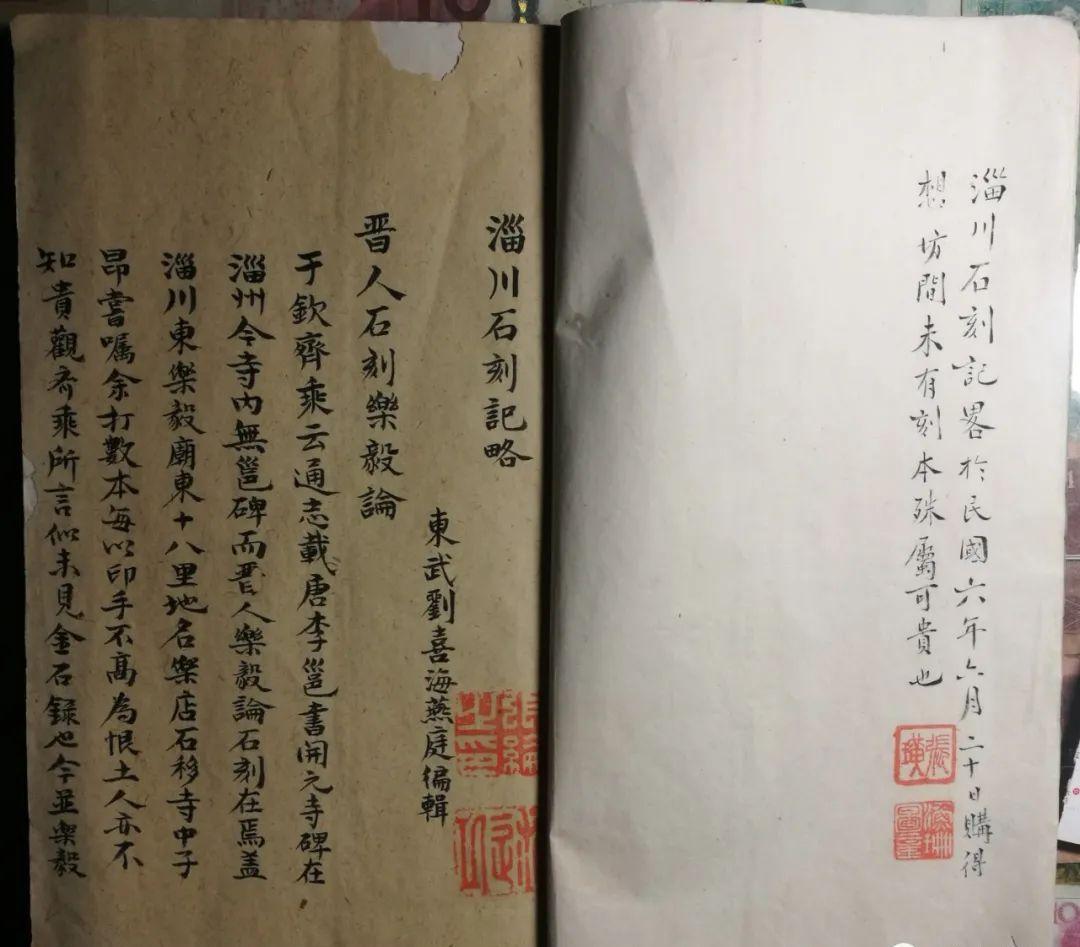 淄川石刻記畧於民國六年六月二十日購得
想坊間未有刻本殊屬可貴也
張
璜
淄川石刻記略
東武劉喜海燕庭編輯
晋人石刻樂毅論
于欽齊乘云通志載唐李邕書開元寺碑在
淄州今寺内無邕碑而晋人樂毅論石刻在焉盖
淄川東樂毅廟東十八里地名樂店石移寺中子
昂嘗嘱余打數本每以印手不高為恨土人亦不
知貴觀齊乘所言似未見金石録也今並樂毅